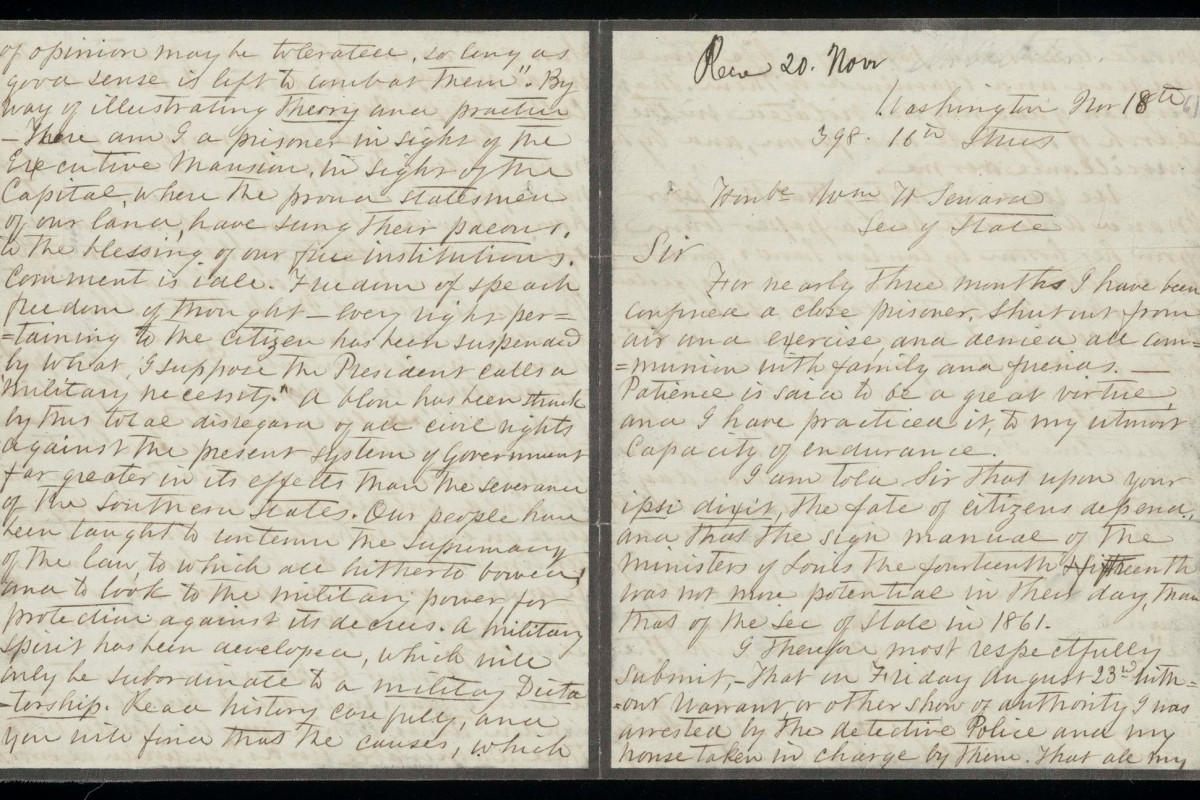 of opinion may be tolerated, so long as
good sense is left to combat them". By
way of illustrating theory and practice
– Here am I a prisoner in sight of the
Executive Mansion, in sight of the
Capital, where the proud statesmen
of our land, have sung their paeons,
to the blessing of our free institutions.
Comment is idle. Freedom of speech
freedom of thought – every right per=
=taining to the citizen has been suspended
by what, I suppose the President calls a
"military necessity." A blow has been struck
by this total disregard of all civil rights
against the present system of Government
far greater in its effects than the severance
of the Southern States. Our people have
been taught to contemn the supremacy
of the law, to which all hitherto bowed,
and to look to the military power for
protection against its decrees. A military
spirit has been developed, which will
only be subordinate to a military Dicta
-torship. Read history carefully, and
you will find that the causes, which
Recd 20. Novr
Washington Nov 18th
398. 16th Street
Honble Wm H Seward
Sec of State
Sir
For nearly three months I have been
confined a close prisoner, shut out from
air and exercise and denied all com=
=munion with family and friends. —
Patience is said to be a great virtue,
and I have practiced it, to my utmost
capacity of endurance.
I am told Sir that upon your
ipsi dixit, the fate of citizens depend,
and that the sign manual of the
ministers of Louis the fourteenth & fifteenth
was not more potential in their day, than
that of the Sec of State in 1861.
I therefore most respectfully
submit, – That on Friday August 23rd with=
=out warrant or other show of authority I was
arrested by the detective Police and my
house taken in charge by them. That all my